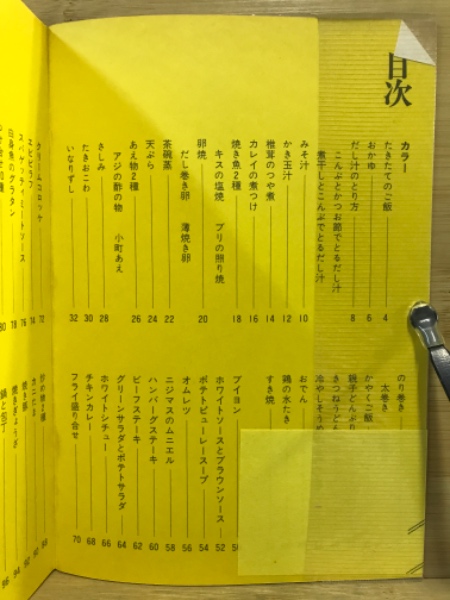 目次
カラー
たきたてのご飯 4
おかゆ 6
だし汁のとり方 8
こんぶとかつお節でとるだし汁
煮干しとこんぶでとるだし汁
みそ汁 10
かき玉汁 12
椎茸のつや煮 14
カレイの煮つけ 16
焼き魚2種 18
キスの塩焼 ブリの照り焼
卵焼 20
だし巻き卵 薄焼き卵
茶碗蒸 22
天ぷら 24
あえ物2種 26
アジの酢の物 小町あえ
さしみ 28
たきおこわ 30
いなりずし 32
のり巻き
太巻き
かやくご飯
親子どんぶり
きつねうどん
冷やしそうめん
おでん
鶏の水たき
すき焼
ブイヨン 50
ホワイトソースとブラウンソース 52
ポテトピューレースープ 54
オムレツ 56
ニジマスのムニエル 58
ハンバーグステーキ 60
ビーフステーキ 62
グリーンサラダとポテトサラダ 64
ホワイトシチュー 66
チキンカレー 68
フライ盛り合せ 70
コロッケ 72
エビピラフ 74
スパゲッティミートソース 76
白身魚のグラタン 78
80
炒め物2種 88
カニたま
焼き豚
焼きぎょうざ
鍋と包丁 96